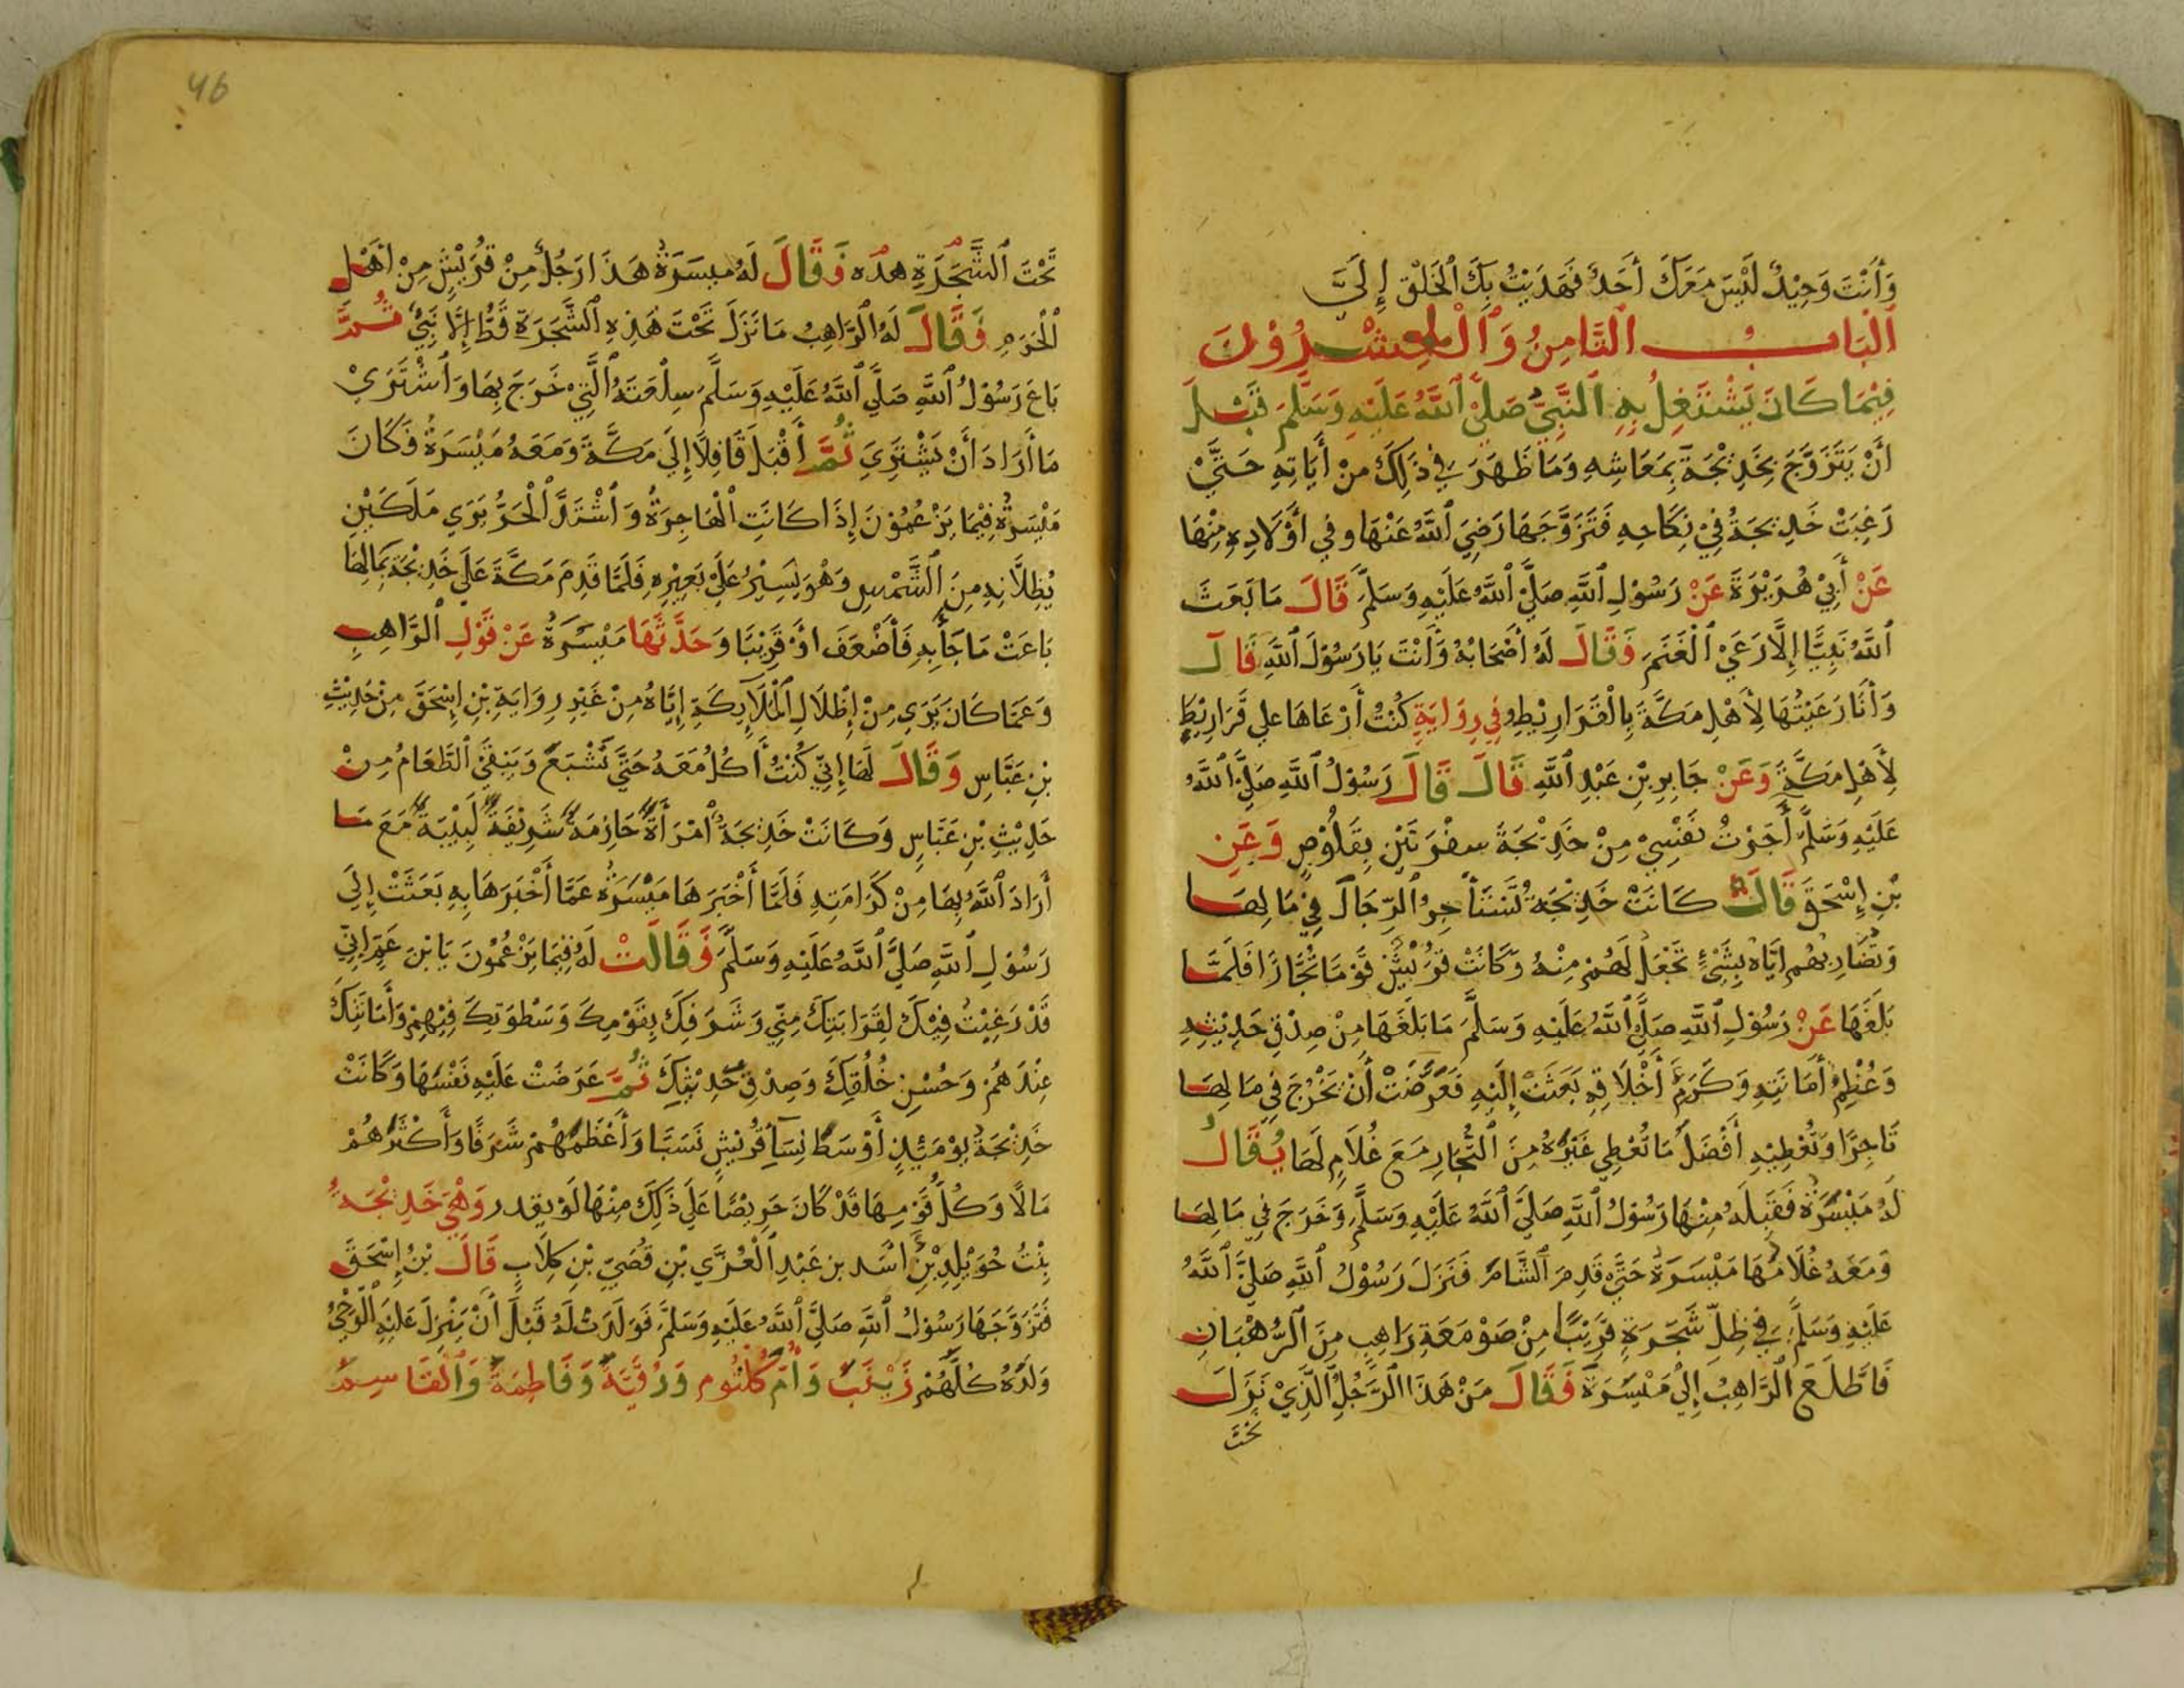 وَأَنْتَ وَحِيْدٌ لَيْسَ مَعَكَ أَحَدٌ فَهَدَيْتُ بِكَ الْخَلْقَ إِلَيَّ
اَلْبَابُ الثَّامِنُ وَالْعِشْرُوْنَ
فِيْمَا كَانَ يَشْتَغِلُ بِهِ النَّبِيُّ صَلَّى اللَّهُ عَلَيْهِ وَسَلَّمَ قَبْلَ
اَنْ يَتَزَوَّجَ بِخَدِيْجَةَ بِمَعَاشِهِ وَمَا ظَهَرَ فِي ذَلِكَ مِنْ أَيَاتِهِ حَتَّى
رَغِبَتْ خَدِيْجَةُ فِيْ نِكَاحِهِ فَتَزَوَّجَهَا رَضِيَ اللَّهُ عَنْهَا وفِي أَوْلَادِهِ مِنْهَا
عَنْ أَبِيْ هُرَيْرَةَ عَنْ رَسُوْلِ اللَّهِ صَلَّى اللَّهُ عَلَيْهِ وَسَلَّمَ قَالَ مَا بَعَثَ
اللَّهُ نَبِيًّا إِلَّا رَعَيْ الْغَنَمَ فَقَالَ لَهُ أَصْحَابُهُ وَأَنْتَ يَا رَسُوْلَ اللَّهِ قَالَ
وَأَنَا رَعَيْتُهَا لِأَهْلِ مَكَّةَ بِالْقَرَارِيْطِ وفِي رِوَايَةٍ كُنْتُ أَرْعَاهَا علي قَرَارِيْطَ
لِأَهْلِ مَكَّةَ وَعَنْ جَابِرِ بْنِ عَبْدِ اللَّهِ قَالَ قَالَ رَسُوْلُ اللَّهِ صَلَّى اللَّهُ
عَلَيْهِ وَسَلَّمَ أَجَرْتُ نَفْسِيْ مِنْ خَدِيْجَةَ سفْرَتَيْنِ بِقَلُوْصٍ وَعَنِ
بْنِ إِسْحَقَ قَالَ كَانَتْ خَدِيْجَةُ تَسْتَأْجِرُ الرِّجَالَ فِيْ مَالِهَا
وَتُضَارِبُهُمْ اِيَّاهُ بِشَيْءٍ تَجْعَلُ لَهُمْ مِنْهُ وَكَانَتْ قُرَيْشٌ قَوْمًا تُجَّارًا فَلَمَّا
بَلَغَهَا عَنْ رَسُوْلِ اللَّهِ صَلَّى اللَّهُ عَلَيْهِ وَسَلَّمَ مَا بَلَغَهَا مِنْ صِدْقِ حَدِيْثِهِ
وَعُظْمِ أَمَانَتِهِ وَكَرَمِ أَخْلَاقِهِ بَعَثَتْ إِلَيْهِ فَعَرَّضَتْ أَنْ يَخْرُجَ فِي مَالِهَا
تَاجِرًا وَتُعْطِيْهِ أَفْضَلَ مَا تُعْطِي غَيْرَهُ مِنَ التُّجَّارِ مَعَ غُلَامٍ لَهَا يُقَالُ
لَهُ مَيْسَرَةُ فَقَبِلَهُ مِنْهَا رَسُوْلُ اللَّهِ صَلَّى اللَّهُ عَلَيْهِ وَسَلَّمَ وَخَرَجَ فِي مَالِهَا
وَمَعَهُ غُلَامُهَا مَيْسَرَةُ حَتَّى قَدِمَ الشَّامَ فَنَزَلَ رَسُوْلُ اللَّهِ صَلَّى اللَّهُ
عَلَيْهِ وَسَلَّمَ فِي ظِلِّ شَجَرَةٍ قَرِيْبًا مِنْ صَوْمَعَةِ رَاهِبٍ مِنَ الرُّهْبَانِ
فَاطَّلَعَ الرَّاهِبُ إِلَى مَيْسَرَةَ فَقَالَ مَنْ هَذَا الرَّجُلُ الَّذِيْ نَزَلَ
تَحْتَ
46
تَحْتَ الشَّجَرَةِ هذه فَقَالَ لَهُ مَيسَرَةُ هَذَا رَجُلٌ مِنْ قُرَيْشٍ مِنْ اَهْلِ
الْحَرَمِ فَقَالَ لَهُ الرَّاهِبُ مَا نَزَلَ تَحْتَ هَذِهِ الشَّجَرَةِ قَطُّ إِلَّا نَبِيٌّ ثُمَّ
بَاعَ رَسُوْلُ اللَّهِ صَلَّى اللَّهُ عَلَيْهِ وَسَلَّمَ سِلْعَتَهُ الَّتِيْ خَرَجَ بِهَا وَاشْتَرَيْ
مَا أَرَادَ أَنْ يَشْتَرِيَ ثُمَّ أَقْبَلَ قَافِلًا إِلَى مَكَّةَ وَمَعَهُ مَيْسَرَةُ فَكَانَ
مَيْسَرَةُ فِيْمَا يَزْعُمُوْنَ إِذَا كَانَتِ الْهَاجِرَةُ وَاشْتَدَّ الْحَرُّ يَرَي مَلَكَيْنِ
يُظِلَّانِهِ مِنَ الشَّمْسِ وَهُوَ يَسِيْرُ عَلَيْ بَعِيْرِهِ فَلَمَّا قَدِمَ مَكَّةَ عَلَى خَدِيْجَةَ بِمَالِهَا
بَاعَتْ مَا جَاءَ بِهِ فَأَضْعَفَ اوْ قَرِيْبًا وَحَدَّثَهَا مَيْسَرَةُ عَنْ قَوْلِ الرَّاهِبِ
وَعَمَّا كَانَ يَرَي مِنْ إِظْلَالِ الْمَلَائِكَةِ إِيَّاهُ مِنْ غَيْرِ رِوَايَةِ بْنِ إِسْحَقَ مِنْ حَدِيْثِ
بْنِ عَبَّاسٍ وَقَالَ لَهَا إِنِّي كُنْتُ أَكُلُ مَعَهُ حَتَّى نَشْبَعَ وَيَبْقَى الطَّعَامُ مِنْ
حَدِيْثِ بْنِ عَبَّاسٍ وَكَانَتْ خَدِيْجَةُ امْرَأَةً حَازِمَةً شَرِيْفَةً لَبِيْبَةً مَعَ مَا
أَرَادَ اللَّهُ بِهَا مِنْ كَرَامَتِهِ فَلَمَّا أَخْبَرَهَا مَيْسَرَةُ عَمَّا أَخْبَرَهَا بِهِ بَعَثَتْ إِلَى
رَسُوْلِ اللَّهِ صَلَّى اللَّهُ عَلَيْهِ وَسَلَّمَ فَقَالَتْ لَهُ فِيْمَا يَزْعُمُوْنَ يَا بْنَ عَمِّ اِنِّي
قَدْ رَغِبْتُ فِيْكَ لِقَرَابَتِكَ مِنِّي وَشَرَفِكَ بِقَوْمِكَ وَسَطْوَتِكَ فِيْهِمْ وَأَمَانَتِكَ
عِنْدَهُمْ وَحُسْنِ خُلُقِكَ وَصِدْقِ حَدِيْثِكَ ثُمَّ عَرَضَتْ عَلَيْهِ نَفْسَهَا وَكَانَتْ
خَدِيْجَةُ يَوْمَئِذٍ أَوْسَطَ نِسَآءِ قُرَيْشٍ نَسَبًا وَأَعْظَمُهُمْ شَرَفًا وَأَكْثَرُهُمْ
مَالًا وَكُلُّ قَوْمِهَا قَدْ كَانَ حَرِيْصًا عَلَى ذَلِكَ مِنْهَا لَوْ يَقدر وَهِيَ خَدِيْجَةُ
بِنْتُ خُوَيْلِدِ بْنِ أَسَد بن عَبْدِ الْعُزَّي بْنِ قُصَيِّ بْنِ كِلَابٍ قَالَ بْنُ إِسْحَقَ
فَتَزَوَّجَهَا رَسُوْلُ اللَّهِ صَلَّى اللَّهُ عَلَيْهِ وَسَلَّمَ فَوَلَدَتْ لَهُ قَبْلَ أَنْ يَنْزِلَ عَلَيْهِ الْوَحْيُ
وَلَدَهُ كُلَّهُمْ زَيْنَبَ وَأُمَّ كُلْثُومٍ وَرُقَيَّةَ وَفَاطِمَةَ وَالْقَاسِمَ